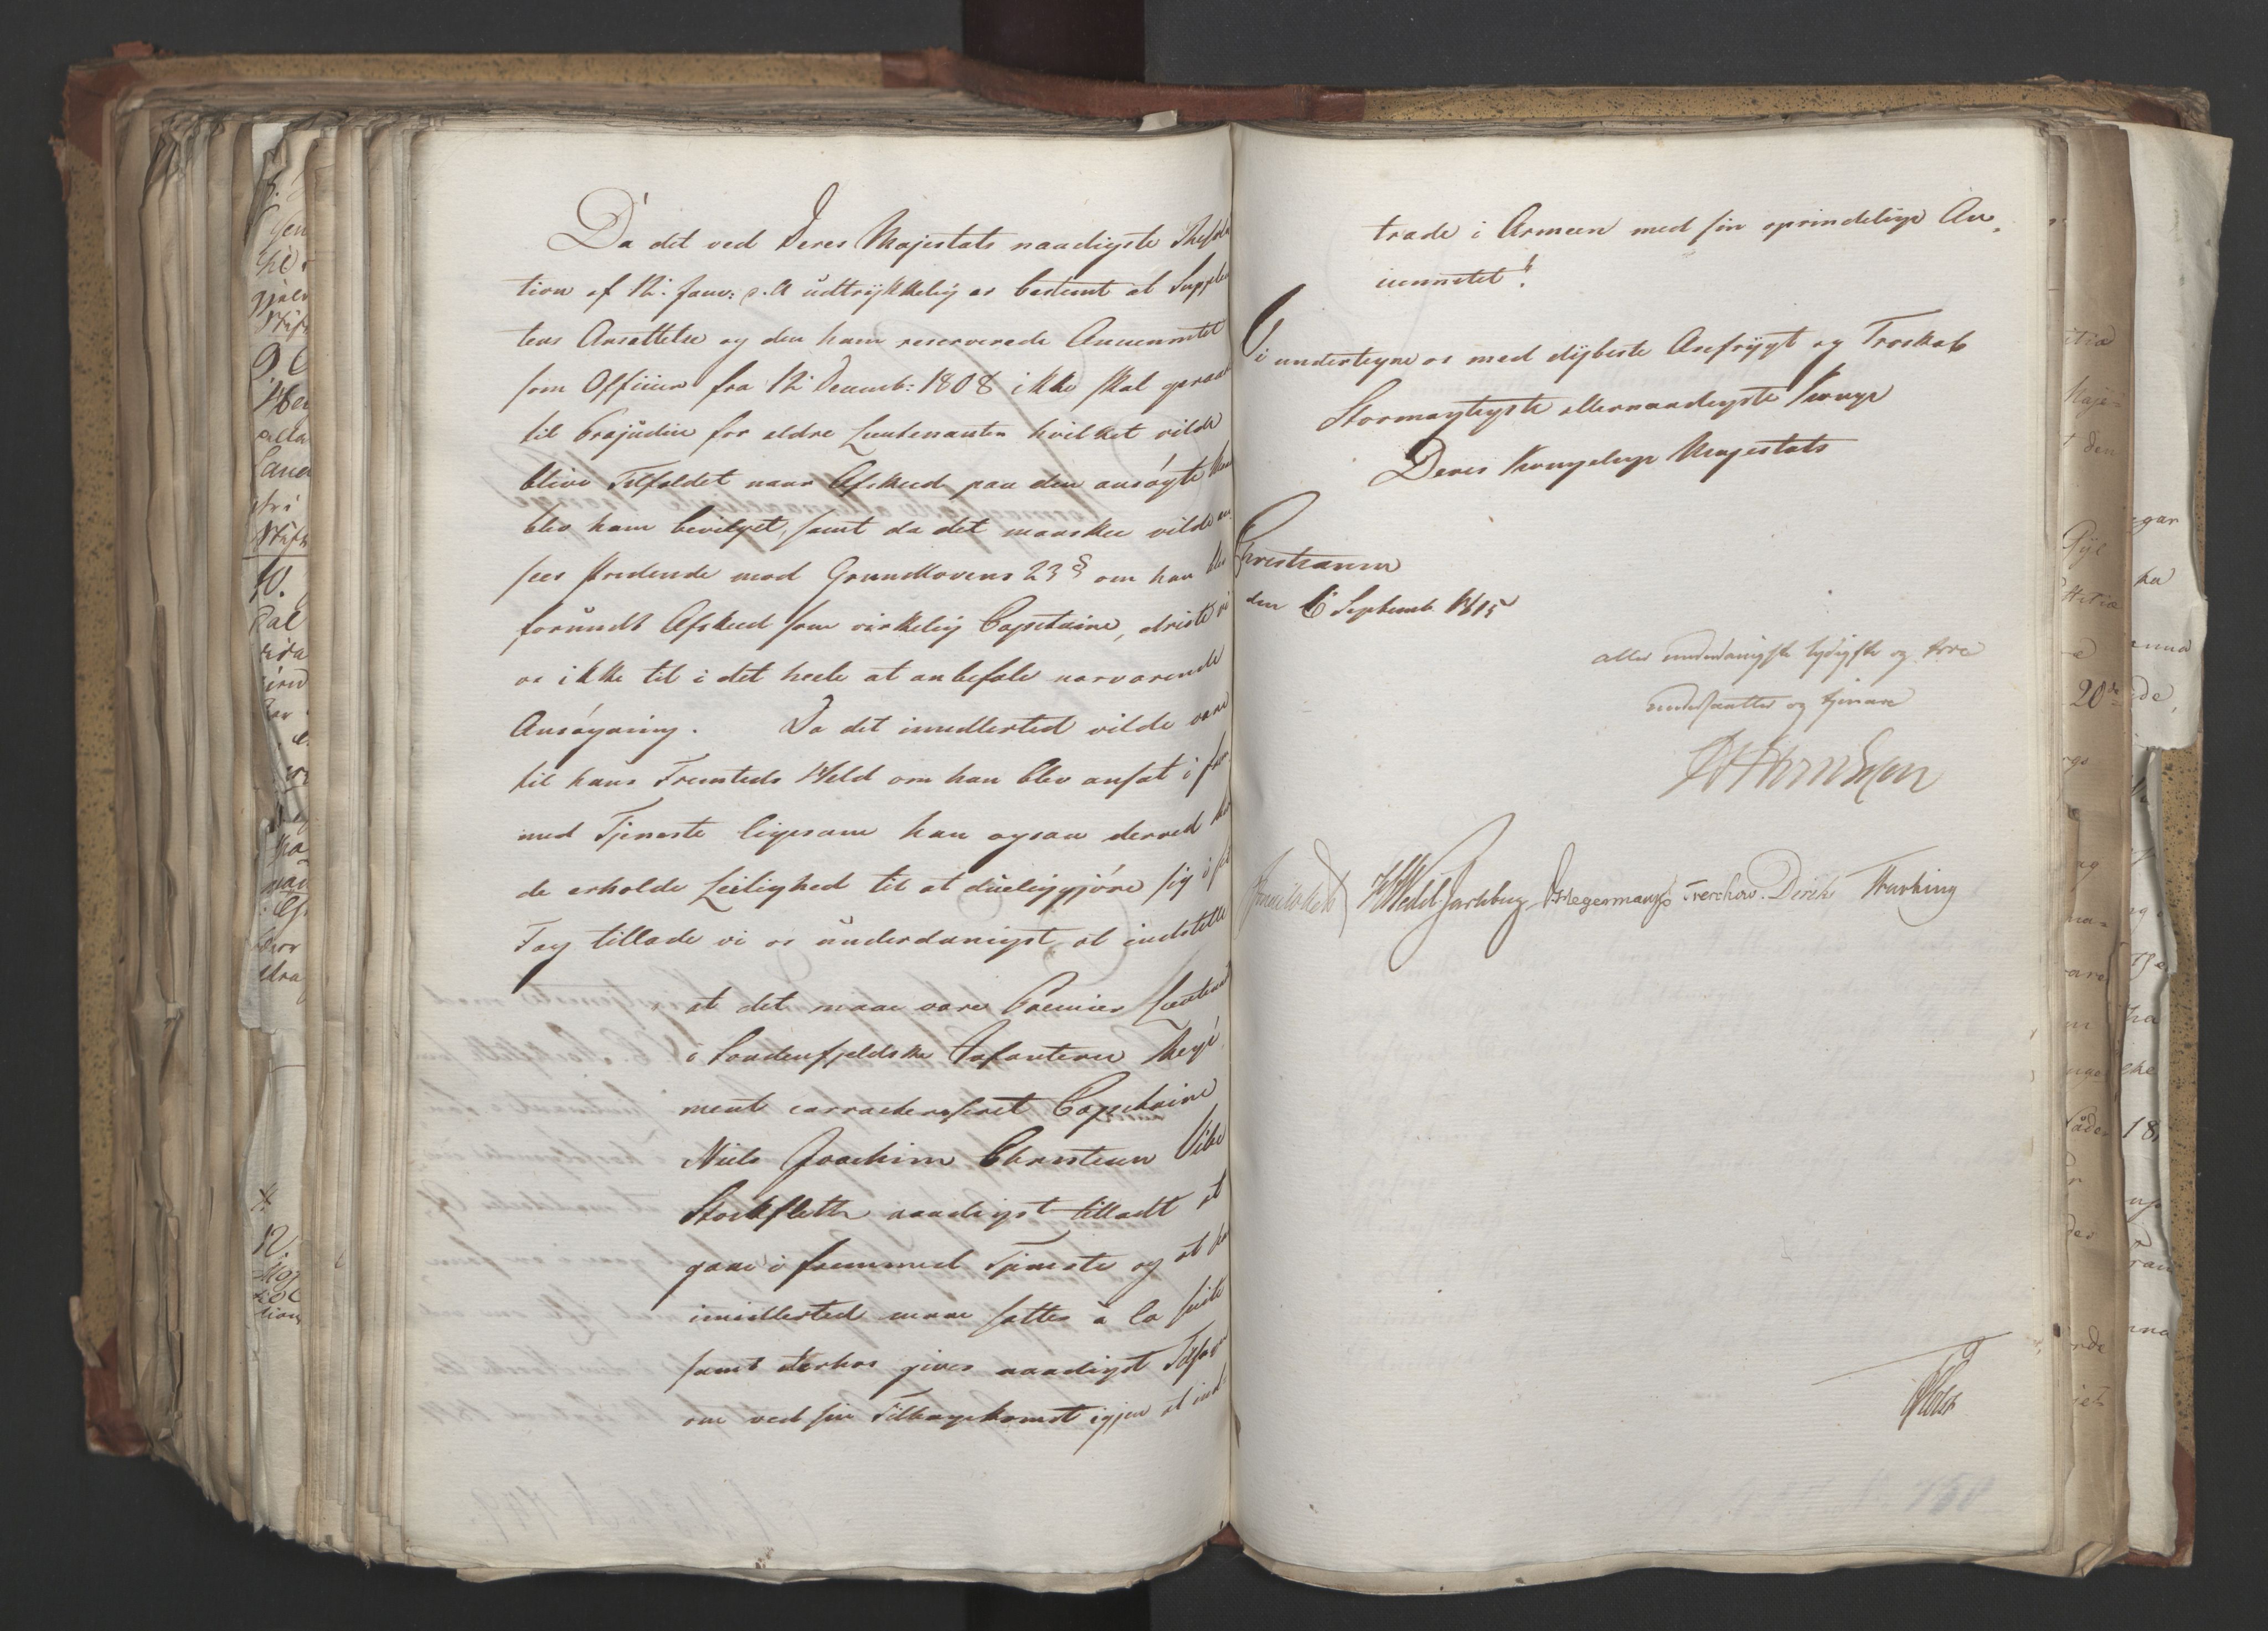 Da det ved Deres Majestæts naadigste Resolu
tion af 12. Janv: d. A udtrykkelig er bestemt at Supplikan
tens Ansættelse og den ham reserverede Anciennitet
som Officier fra 12 Decemb: 1808 ikke skal geraade
til Præjudice for ældre Lieutenanter hvilket vilde
blive Tilfældet naar Afskeed paa den ansøgte
blev ham bevilget, samt da det maaskee vilde an
sees stridende mod Grundlovens 23 § om han blev
forundt Afskeed som virkelig Capitaine, driste vi
os ikke til i det heele at anbefale nærværende
Ansøgning. Da det imidlertid vilde være
til hans Fremtids Held om han blev ansat i frem
med Tjeneste ligesom han ogsaa derved vil
de erholde Leilighed til at dueliggjøre sig i sit
Fag tillade vi os underdanigst at indstille
at det maae være Premier Lieutenant
i Søndenfjeldske Infanterie Regi
ment carracteriseret Capitaine
Niels Joachim Christian Vibe
Stockfleth naadigst tilladt at
gaae i fremmed Tjeneste og at han
imidlertid maae sættes à la suite
samt derhos gives naadigst Tilsagn
om ved sin Tilbagekomst igjen at ind
træde i Armeen med sin oprindelige An
cienniteet!
Vi undertegne os med dybeste Ærefrygt og Troskab
Stormægtigste allernaadigste Konge
Deres Kongelige Majestæts
Christiania
den 6 Septemb 1815
aller underdanigste lydigste og troe
undersaatter og tjenere
F Haxthausen HWedel Jarlsberg D Hegermann N Treschow Diriks Thurbing
Holst